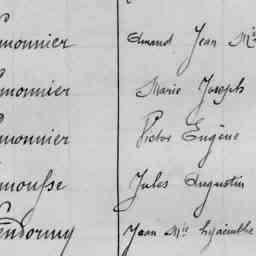 monnier Amand Jean M^ie
monnier Marie Joseph
monnier Victor Eugène
mousse Jules Augustin
Jean M^ie hyacinthe